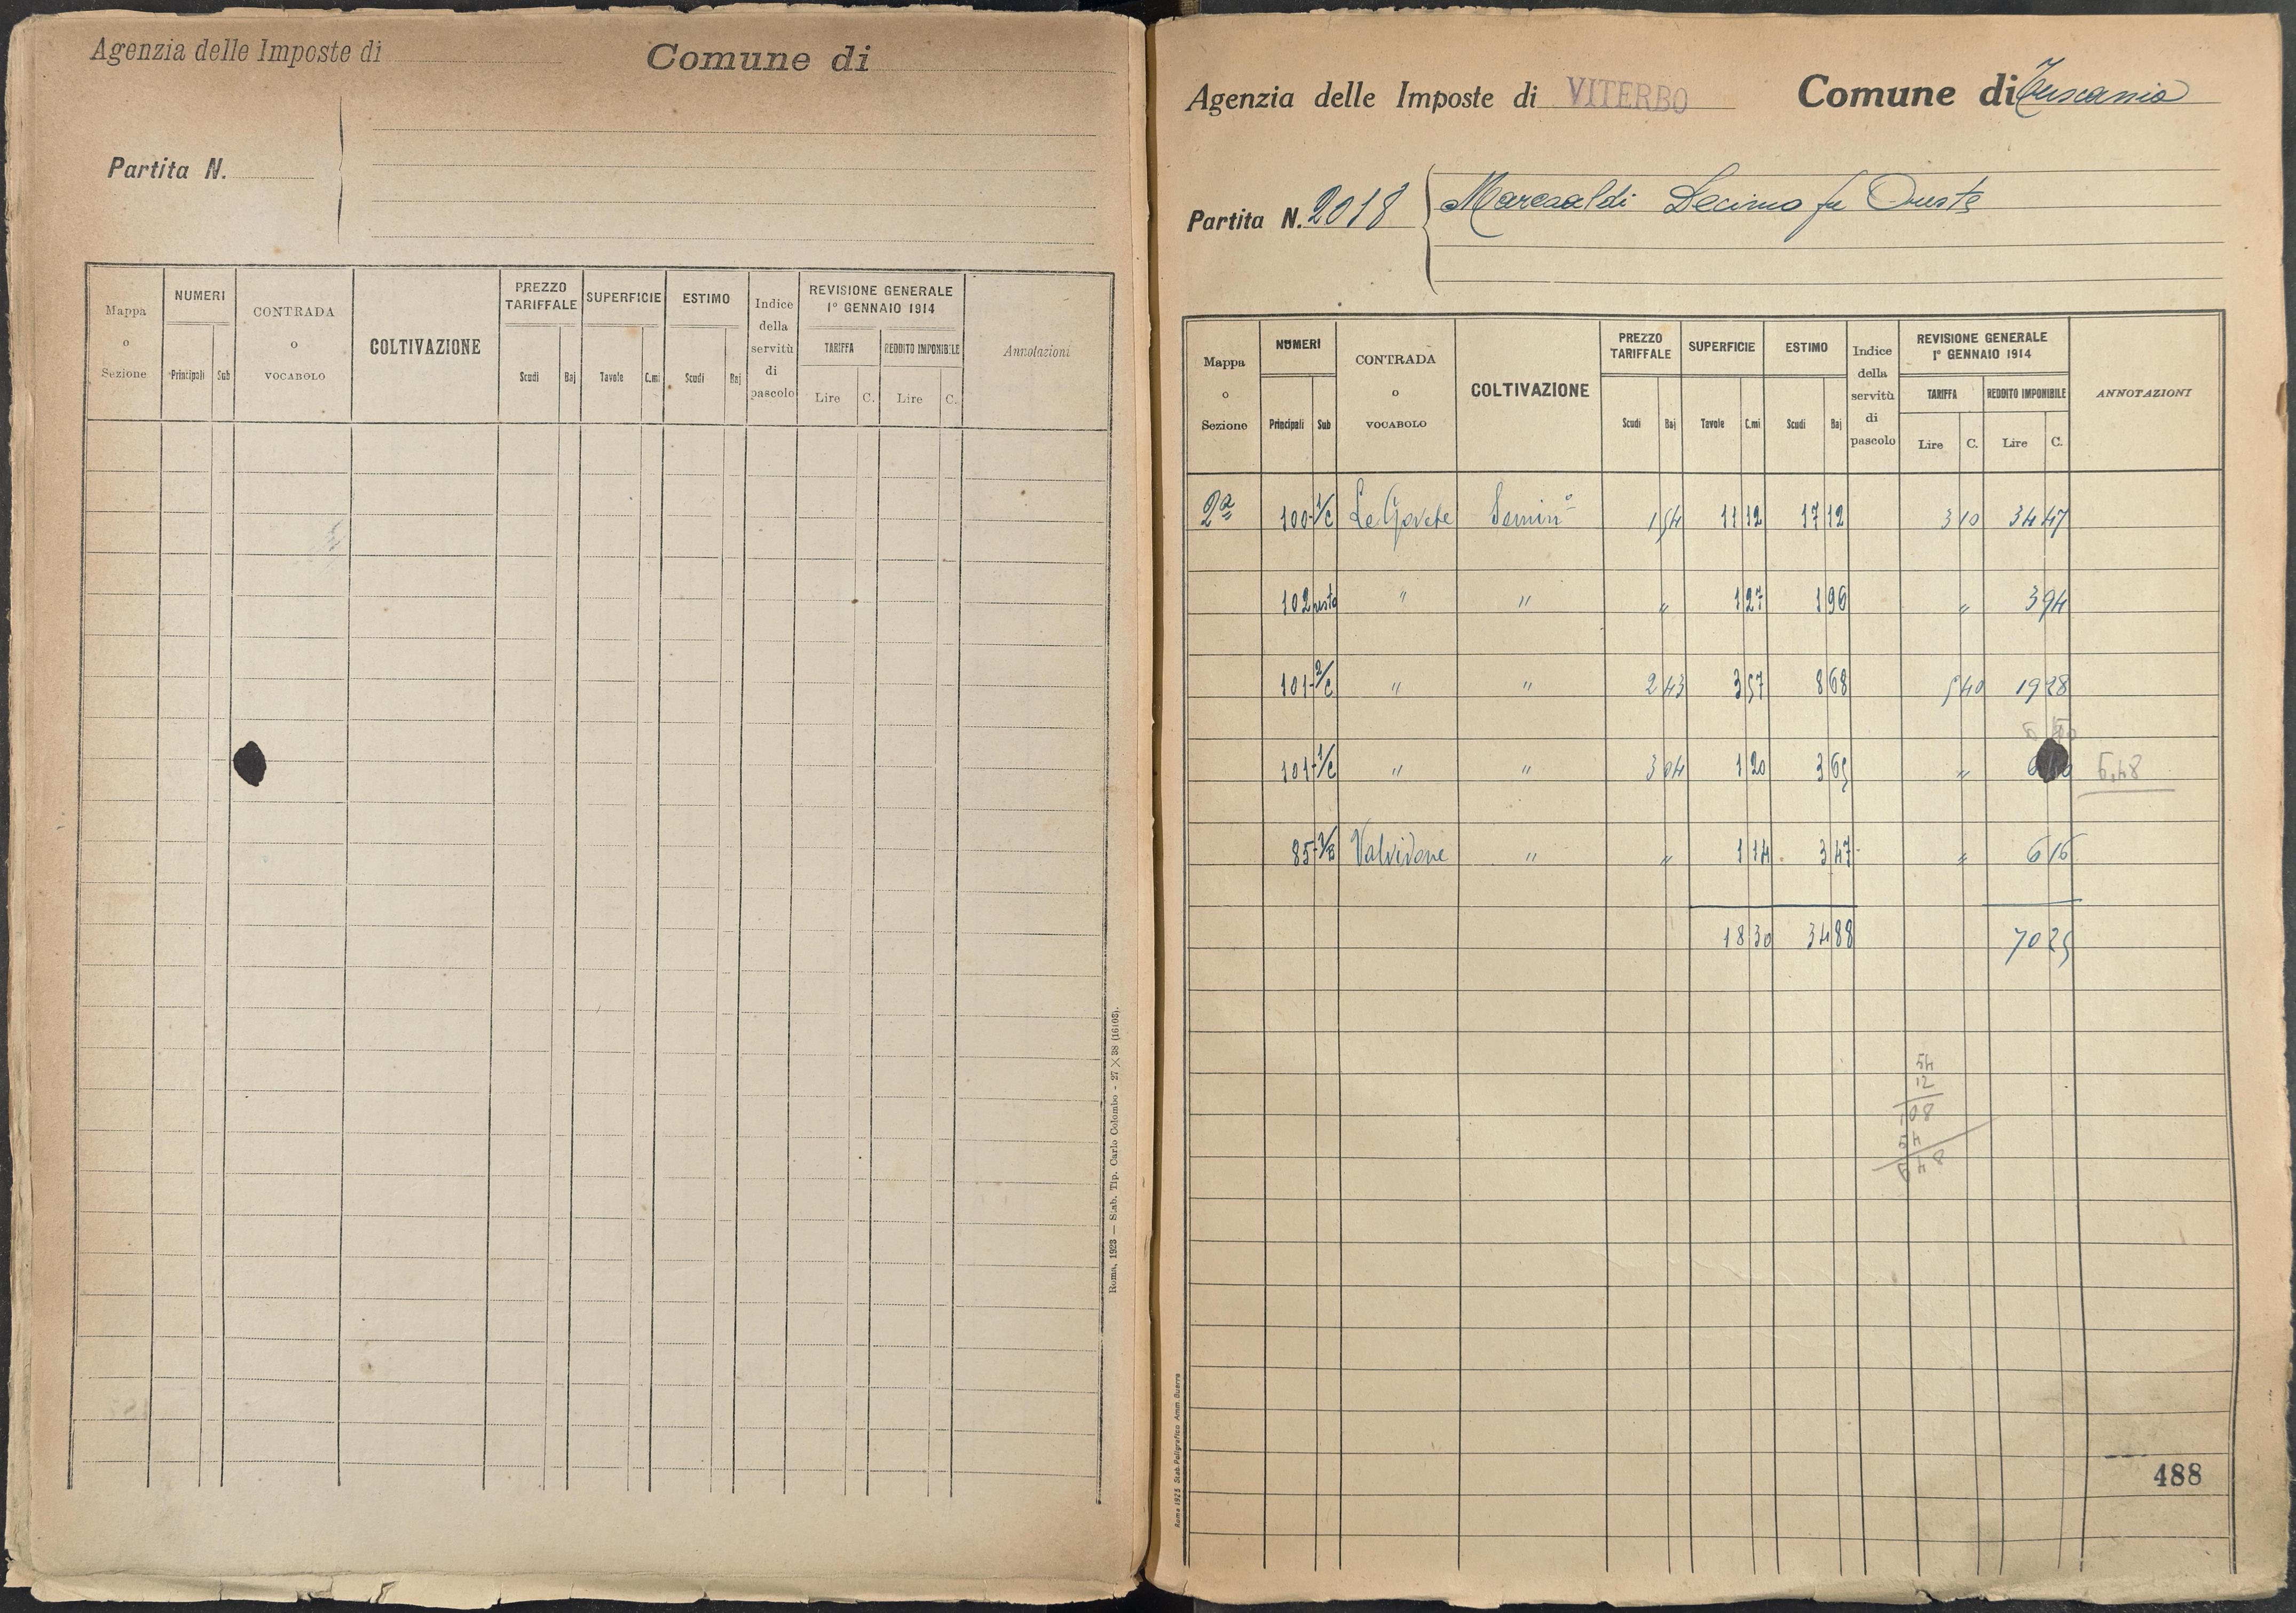 Agenzia delle Imposte di
Comune di
Partita N.
Mappa o Sezione
NUMERI
Principali Sub
CONTRADA o VOCABOLO
COLTIVAZIONE
PREZZO TARIFFALE
Scudi Baj
SUPERFICIE
Tavole C.mi
ESTIMO
Scudi Baj
Indice della servitù di pascolo
REVISIONE GENERALE
1° GENNAIO 1914
TARIFFA
Lire C.
REDDITO IMPONIBILE
Lire C.
Annotazioni
Roma, 1923 — Stab. Tip. Carlo Colombo - 27 × 38 (16103).
Agenzia delle Imposte di VITERBO
Comune di Tuscania
Partita N. 2018
Marcoaldi Decimo fu Oreste
Mappa o Sezione
NUMERI
Principali Sub
CONTRADA o VOCABOLO
COLTIVAZIONE
PREZZO TARIFFALE
Scudi Baj
SUPERFICIE
Tavole C.mi
ESTIMO
Scudi Baj
Indice della servitù di pascolo
REVISIONE GENERALE
1° GENNAIO 1914
TARIFFA
Lire C.
REDDITO IMPONIBILE
Lire C.
ANNOTAZIONI
2ª 100 1/C Semin° 1 54 11 12 17 12 3 10 34 47
102 resto " " " 1 27 1 96 " 3 94
101 2/C " " 2 43 3 57 8 68 5 40 19 28
101 1/C " " 3 04 1 20 3 65 " 6 6,48
85 Valvidone " " 1 14 3 47 " 6 16
18 30 34 88 70 25
54
12
108
54
648
488
Roma 1925 Stab. Poligrafico Amm. Guerra